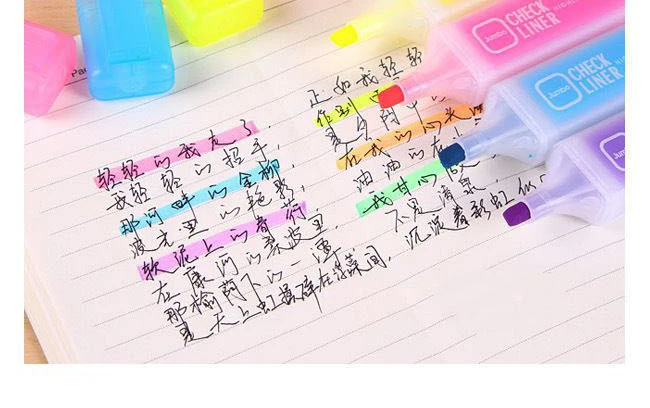 轻轻的我走了，
我轻轻的招手，
那河畔的金柳
波光里的艳影，
软泥上的青荇
在康河的柔波里
那榆荫下的一潭，
是天上虹揉碎在浮藻间，
正如我轻轻
作别
是夕阳中
在我的心头
油油的在
我甘心
不是清泉，
沉淀着彩虹似
Jumbo CHECK LINER
Jumbo CHECK LINER
Jumbo